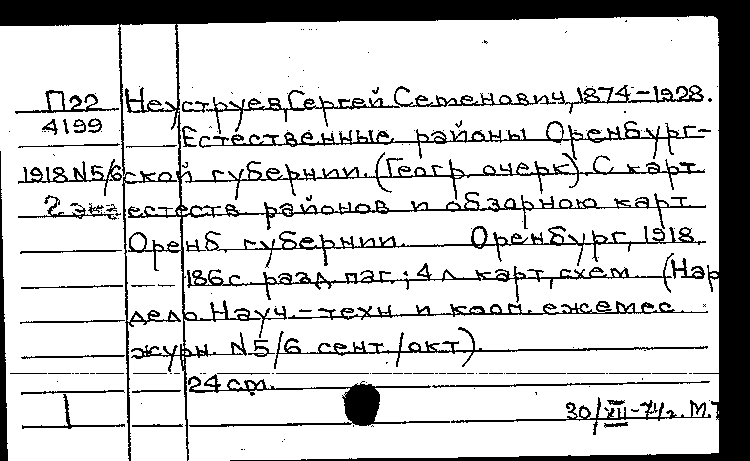 П22 Неуструев, Сергей Семенович, 1874-1928.
4199 Естественные районы Оренбург-
1918 N5/6 ской губернии. (Геогр. очерк). С карт.
2 экз естеств. районов и обзорною карт.
Оренб. губернии. Оренбург, 1918.
186 с. разд. паг.; 4 л. карт, схем. (Нар.
дело. Науч.-техн. и кооп. ежемес.
журн. N5/6 сент./окт).
24 cm.
1 30/XII-74 г. М.